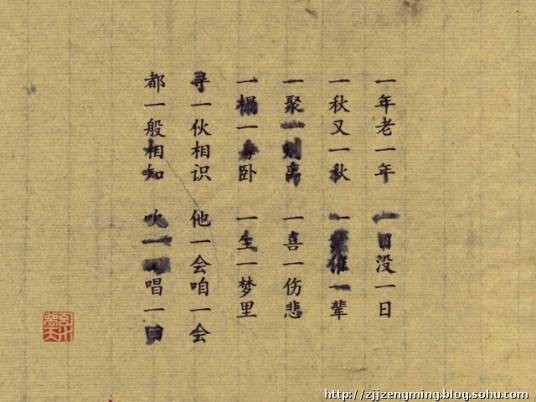 一年老一年 一日没一日
一秋又一秋 一催一辈
一聚一别离 一喜一伤悲
一榻一卧 一生一梦里
寻一伙相识 他一会咱一会
都一般相知 吹一唱一回
http://zjjzengming.blog.sohu.com